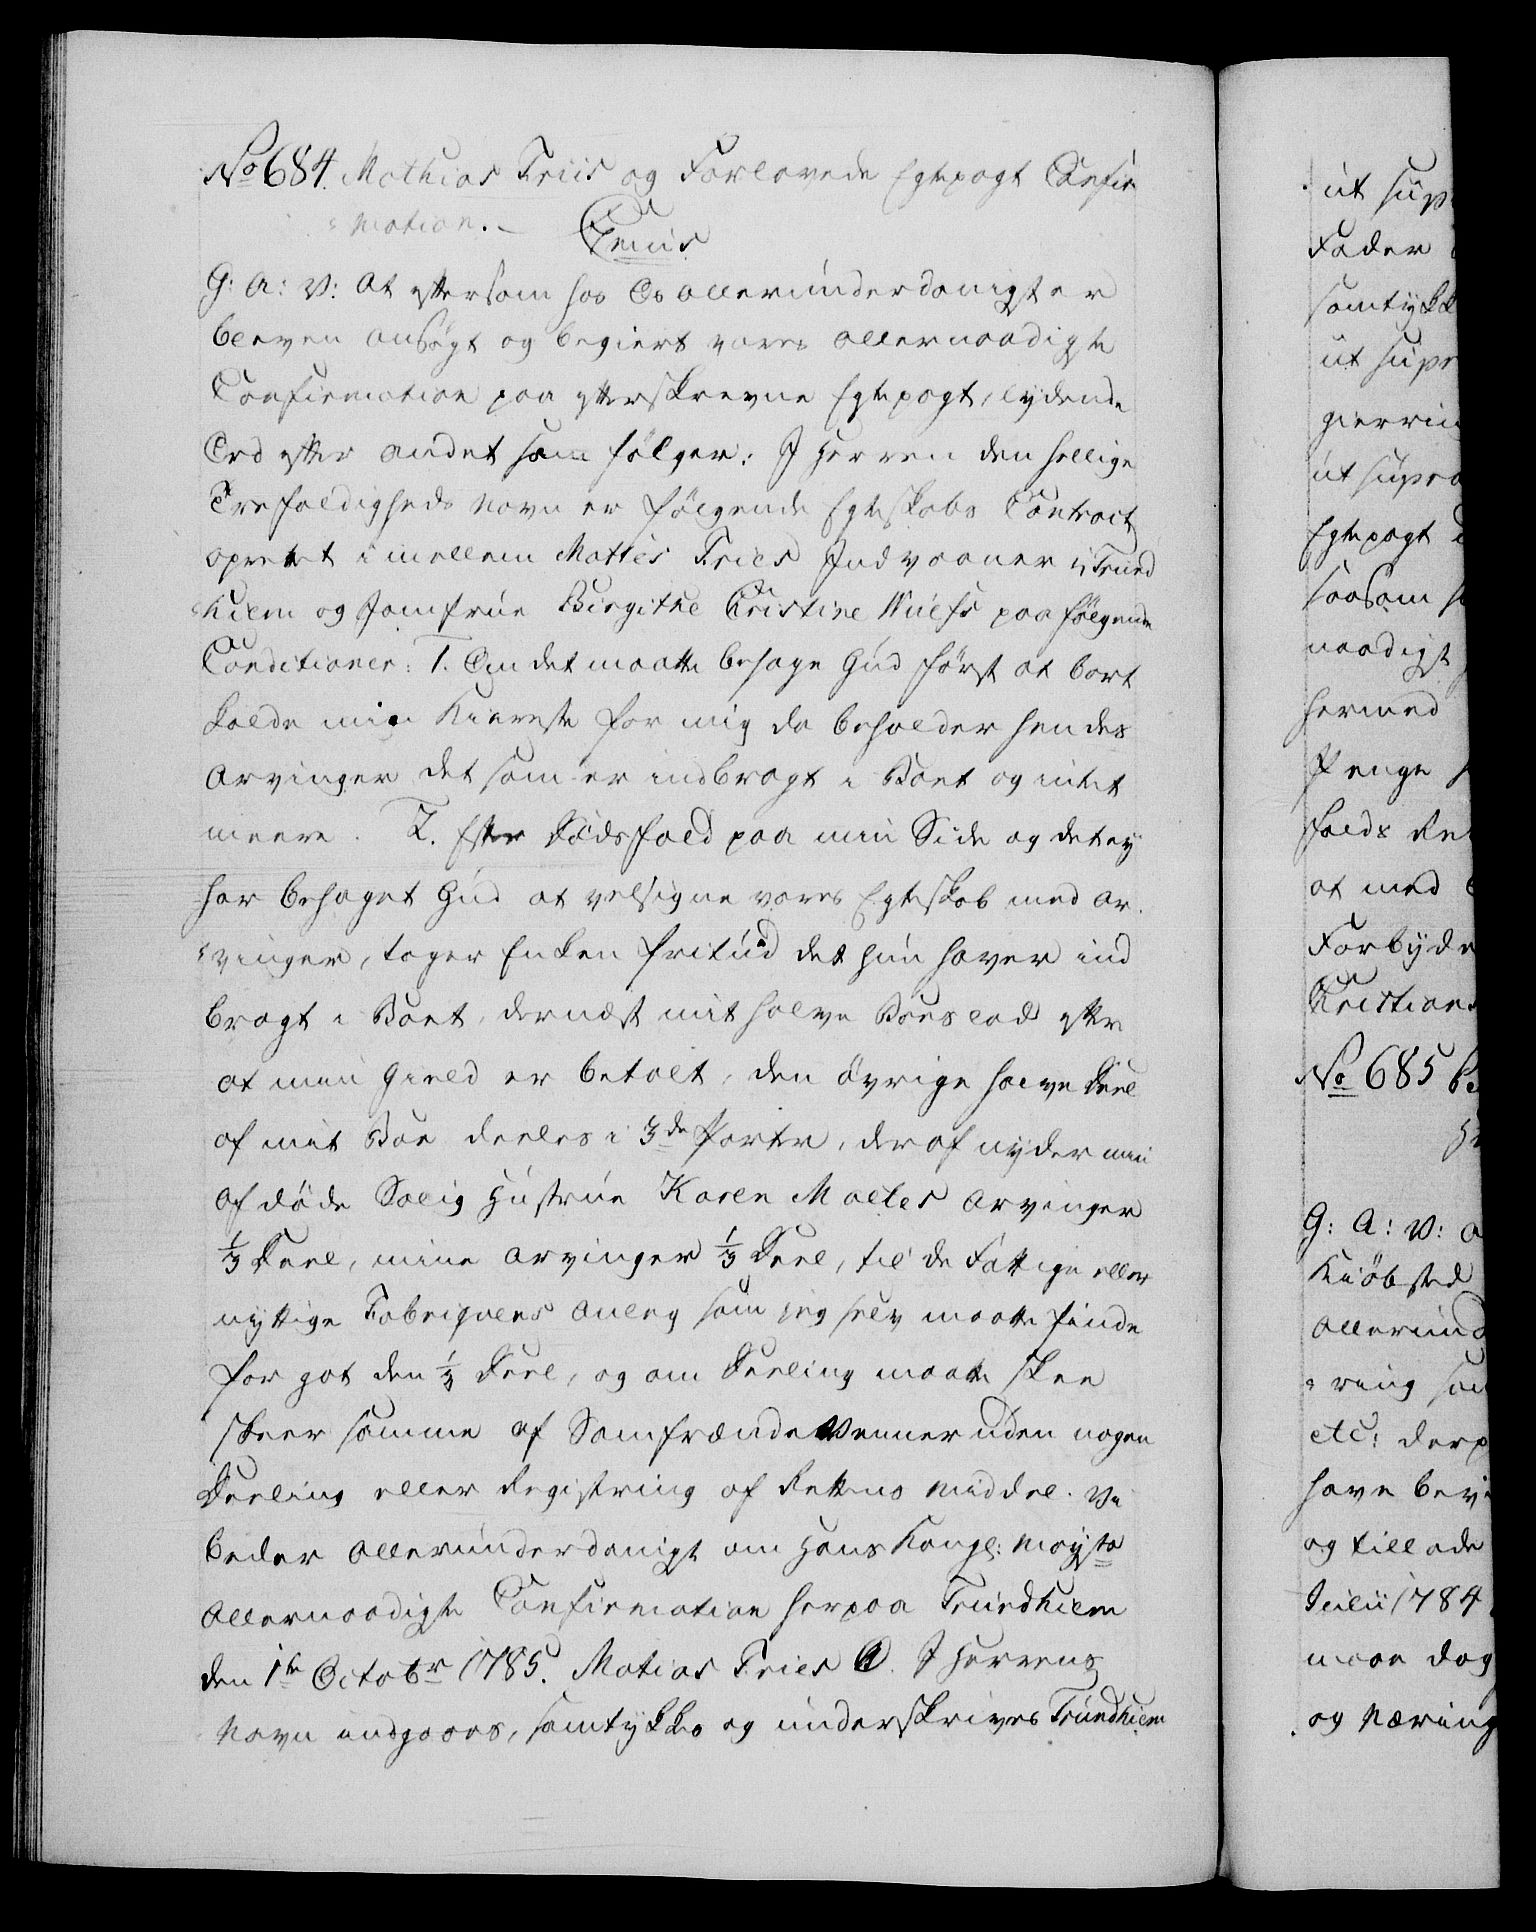 No 684. Mathias Friis og Forlovede Egtepagt Confir
=mation. -
Gratis
G: A: V: At eftersom hos Os allerunderdanigst er
bleven ansøgt og begiert vores allernaadigste
Confirmation paa efterskrevne Egtepagt, lydende
Ord efter andet som følger: I Herren den hellige
Trefoldigheds Navn er følgende Egteskabs Contract
oprettet imellem Mattis Fries Indvaaner i Trund
hiem og Jomfrue Birgithe Christine paa følgende
Conditioner: 1. Om det maatte behage Gud først at bort
kalde min Kiereste for mig da beholder hendes
Arvinger det som er indbragt i Boet og intet
meere. 2. Efter Dødsfald paa min Side og det ey
har behaget Gud at velsigne vores Egteskab med Ar
=vinger, tager Enken frit ud det hun haver ind
bragt i Boet, dernæst mit halve Boes lod efter
at min Gield er betalt, den øvrige halve Deel
af mit Boe deeles i 3de Parter, deraf nyder min
af døde Salig Hustrue Karen Moeles Arvinger
1/3 Deel, mine Arvinger 1/3 Deel, til de Fattige eller
nyttige Fabriqvers Anleg som jeg selv maatte finde
for got den 1/3 Deel, og om Deeling maatte skee
skeer samme af Samfrænde Venner uden nogen
Deeling eller Registring af Rettens Middel. Vi
beder allerunderdanigst om Hans Kongl: Mayts
Allernaadigste Confirmation herpaa Trundhiem
den 1te Octobr 1785. Matias Fries I Herrens
Navn indgaaes, samtykkes og underskrives Trundhiem
ut supr
Fader
samtykke
ut supr
ut supra
Egtepagt
saasom
naadigst
hermed
Penge
falds
at med
Forbyde
Christians
No 685
G: A: V: a
Kiøbsted
Allerund
=ring
etc: derp
have bevi
og tillade
Julii 1784
maae dog
og Næring